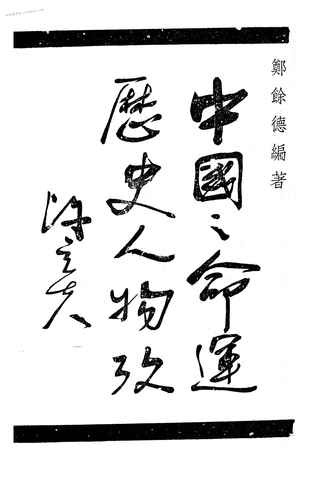 鄭餘德編著
中國之命運
歷史人物攷
陳立夫